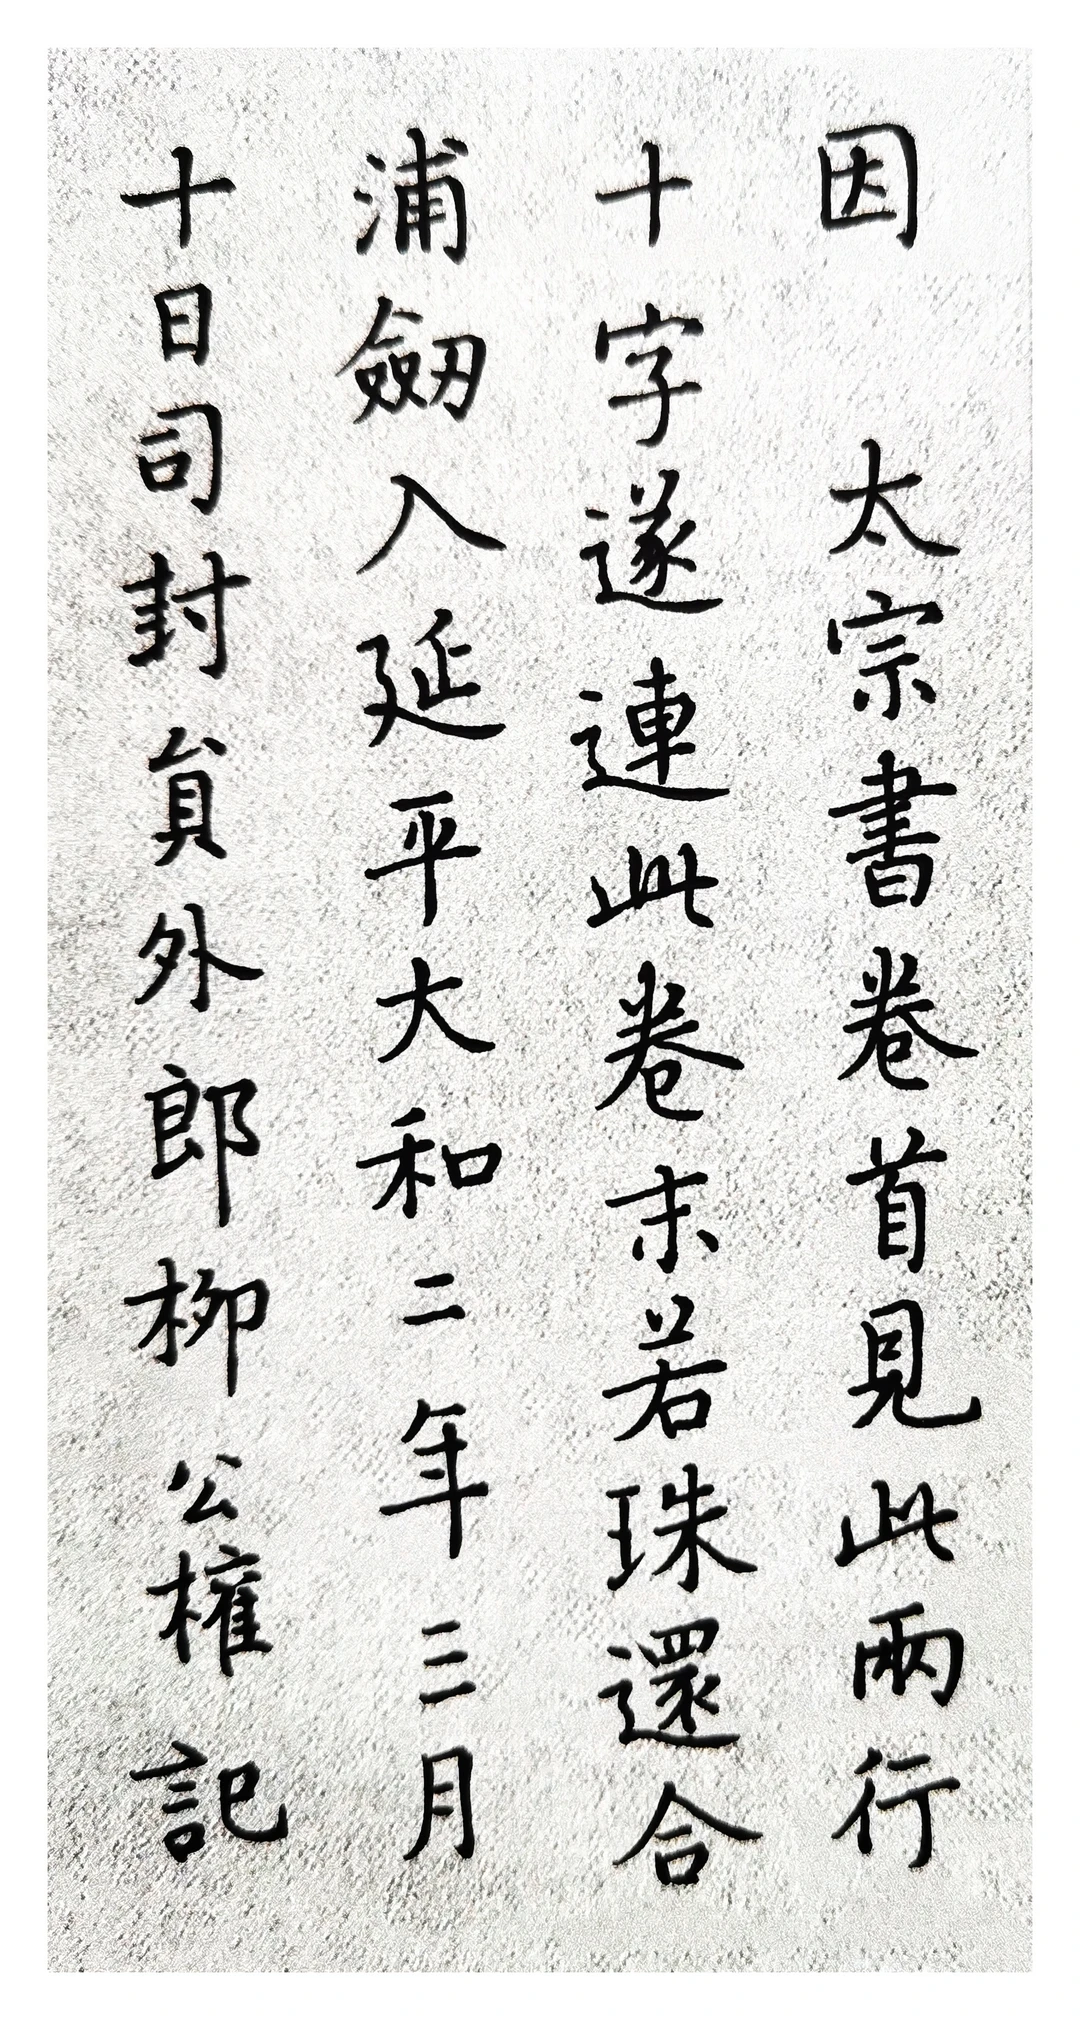 因 太宗書卷首見此兩行
十字遂連此卷末若珠還合
浦劒入延平大和二年三月
十日司封負外郎柳公權記